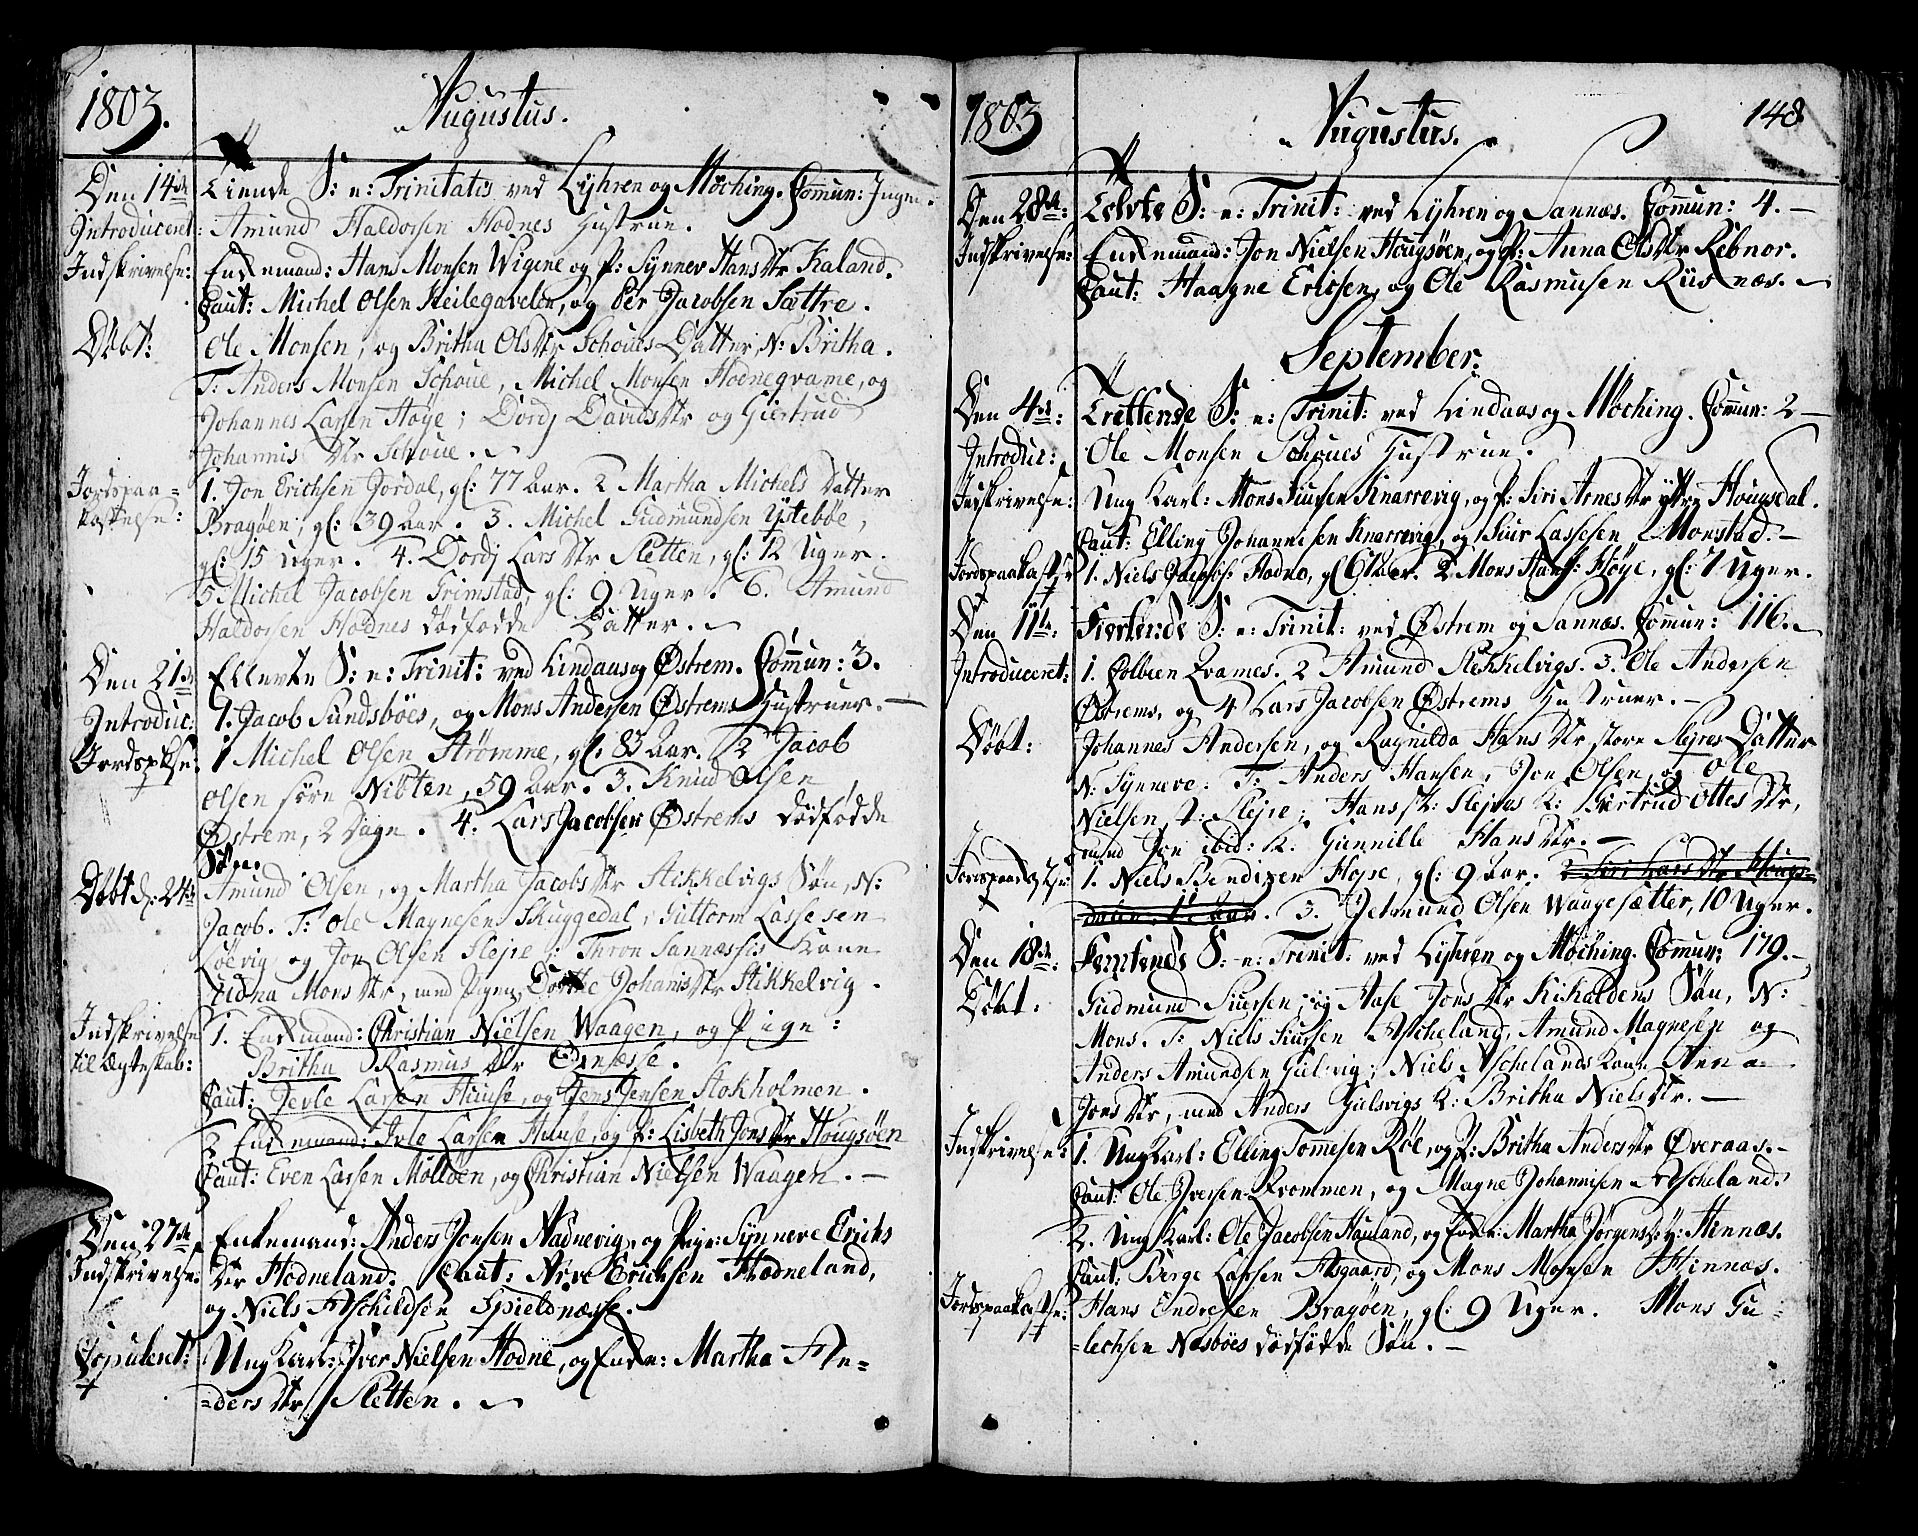 1803. Augustus.
Den 14de Tiende S: e: Trinitatis ved Lyhren og Møching. Commun: Ingen.
Introduceret: Amund Haldorsen Hodnes Hustrue.
Indskrivelse: Enkemand: Hans Monsen Wigene og P: Synnev Hans Dtr Kaland.
Caut: Michel Olsen Heilegavelen, og Per Jacobsen Sættre.
Døbt: Ole Monsen, og Britha Ols Dtr Schoues Datter, N: Britha.
T: Anders Monsen Schoue, Michel Monsen Hodneqvame, og
Johannes Larsen Høye; Dordj Davids Dtr og Giertrud
Johannis Dtr Schoue.
Jordspaa= 1. Jon Erichsen Jordal, gl: 77 Aar. 2 Martha Michels Datter
kastelse: Bragøen, gl: 39 Aar. 3. Michel Gudmundsen Ystebøe,
gl: 15 Uger. 4. Dordj Lars Dtr Sletten, gl: 12 Uger.
5 Michel Jacobsen Grimstad, gl: 9 Uger. 6. Amund
Haldorsen Hodnes dødfødde Datter.
Den 21de Ellevte S: e: Trinit: ved Lindaas og Østrem. Commun: 3.
Introduc: 1. Jacob Sundsbøes, og Mons Andersen Østrems Hustruer.
Jordspkse: 1 Michel Olsen Strømme, gl: 83 Aar. 2 Jacob
Olsen søre Nibten, 59 Aar. 3. Knud Olsen
Østrem, 2 Dage. 4. Lars Jacobsen Østrems dødfødde
Søn.
Døbt d: 24de Amund Olsen, og Martha Jacobs Dtr Stikkelvigs Søn, N:
Jacob. T: Ole Magnesen Skuggedal, Guttorm Lassesen
og Jon Olsen Slejre; Thron Sannæsses Kone
Mons Dtr, med Pigen Johanis Dtr Stikkelvig.
Indskrivelse 1. Enkemand: Christian Nielsen Waagen, og Pige:
til Ægteskab: Britha Rasmus Dtr
Caut: Larsen Huuse, og Jens Jensen Stokholmen.
2 Enkemand: Larsen Huuse, og P: Lisbeth Jons Dtr Hougsøen
Caut: Even Larsen Mollven, og Christian Nielsen Waagen.
Den 27de Enkemand: Anders Jonsen Nadnevig, og Pige: Synneve Erichs
Indskrivelse: Dtr Hodneland. Caut: Erichsen Hodneland,
og Niels Aschildsen Spieldnæsse.
Copulent: Ung Karl: Iver Nielsen Hodne, og Enke: Martha An=
=ders Dtr Sletten.
1803 Augustus. 148
Den 28de: Tolvte S: e: Trinit: ved Lyhren og Sannæs. Commun: 4.
Indskrivelse: Enkemand: Jon Nielsen Hougsøen, og P: Anna Ols Dtr Rebnor.
Caut: Haagne Ericsen, og Ole Rasmusen Riisnæs.
September.
Den 4de: Trettende S: e: Trinit: ved Lindaas og Møching. Commun: 2
Introduc: Ole Monsen Schoues Hustrue.
Indskrivelse: Ung Karl: Mons Siursen Knarrevig, og P: Siri Arnes Dtr yttre Hougsdal.
Caut: Elling Johannesen Knarrevig, og Siur Lassesen Monstad.
Jordspaakastelse 1. Niels Jacobs: Hodne, gl: 61 Aar. 2 Mons Hans: Høye, gl: 7 Uger.
Den 11te: Fiortende S: e: Trinit: ved Østrem og Sannæs. Commun: 116.
Introduceret: 1. Qvames. 2 Amund Stikkelvigs. 3. Ole Andersen
Østrems, og 4 Lars Jacobsen Østrems Hustruer.
Døbt: Johannes Andersen, og Ragnilda Hans Dtr store Slejres Datter
N: Synneve. T: Anders Hansen, Jon Olsen, og Ole
Nielsen, Slejre; Hans K: Giertrud Ottes Dtr,
med Jon ibid: K: Gunnille Hans Dtr.
1. Niels Bendixen Hopse, gl: 9 Aar. 2 Siri Lars Dtr Hougs=
dalen 12 Aar. 3. Gudmund Olsen Waagesætter, 10 Uger.
Den 18de: Femtende S: e: Trinit: ved Lyhren og Møching. Commun: 179.
Døbt: Gudmund Siursen, og Aase Jons Dtr Søn, N:
Mons. T: Niels Siursen Ascheland, Amund Magnesen og
Anders Amundsen Gulvig; Niels Aschelands Kone Anna
Jons Dtr, med Anders Gulvigs K: Britha Niels Dtr.
Indskrivelse: 1. Ung Karl: Elling Tommesen Røe, og P: Britha Anders Dtr Øveraas.
Caut: Ole Iversen Krommen, og Magne Johannesen Ascheland.
2. Ung Karl: Ole Jacobsen Hauland, og Enke: Martha Jørgens Hinnæs.
Caut: Berge Larsen Assgaard, og Mons Monsen Hinnæs.
Jordspaakastelse: Hans Endresen Bragøen, gl: 9 Uger. Mons Gu=
=lechsen Næsbøes dødfødde Søn.